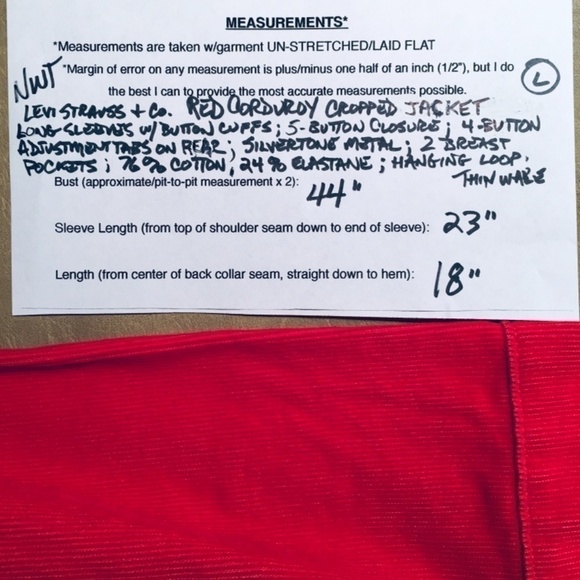 MEASUREMENTS*
*Measurements are taken w/garment UN-STRETCHED/LAID FLAT
NWT *Margin of error on any measurement is plus/minus one half of an inch (1/2"), but I do
the best I can to provide the most accurate measurements possible.
L
LEVI STRAUSS + CO. RED CORDUROY CROPPED JACKET
LONG-SLEEVES W/ BUTTON CUFFS; 5-BUTTON CLOSURE; 4-BUTTON
ADJUSTMENT TABS ON REAR; SILVERTONE METAL; 2 BREAST
POCKETS; 76% COTTON, 24% ELASTANE; HANGING LOOP.
THIN WALE
Bust (approximate/pit-to-pit measurement x 2): 44"
Sleeve Length (from top of shoulder seam down to end of sleeve): 23"
Length (from center of back collar seam, straight down to hem): 18"